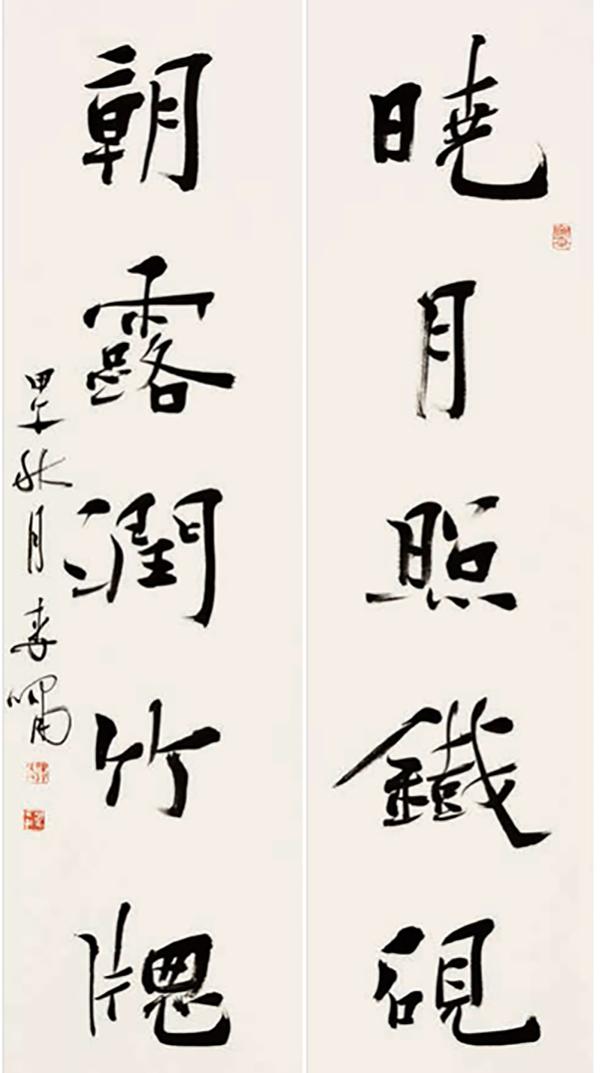 曉月照鐵硯
朝露潤竹牕
甲午秋月李嘯